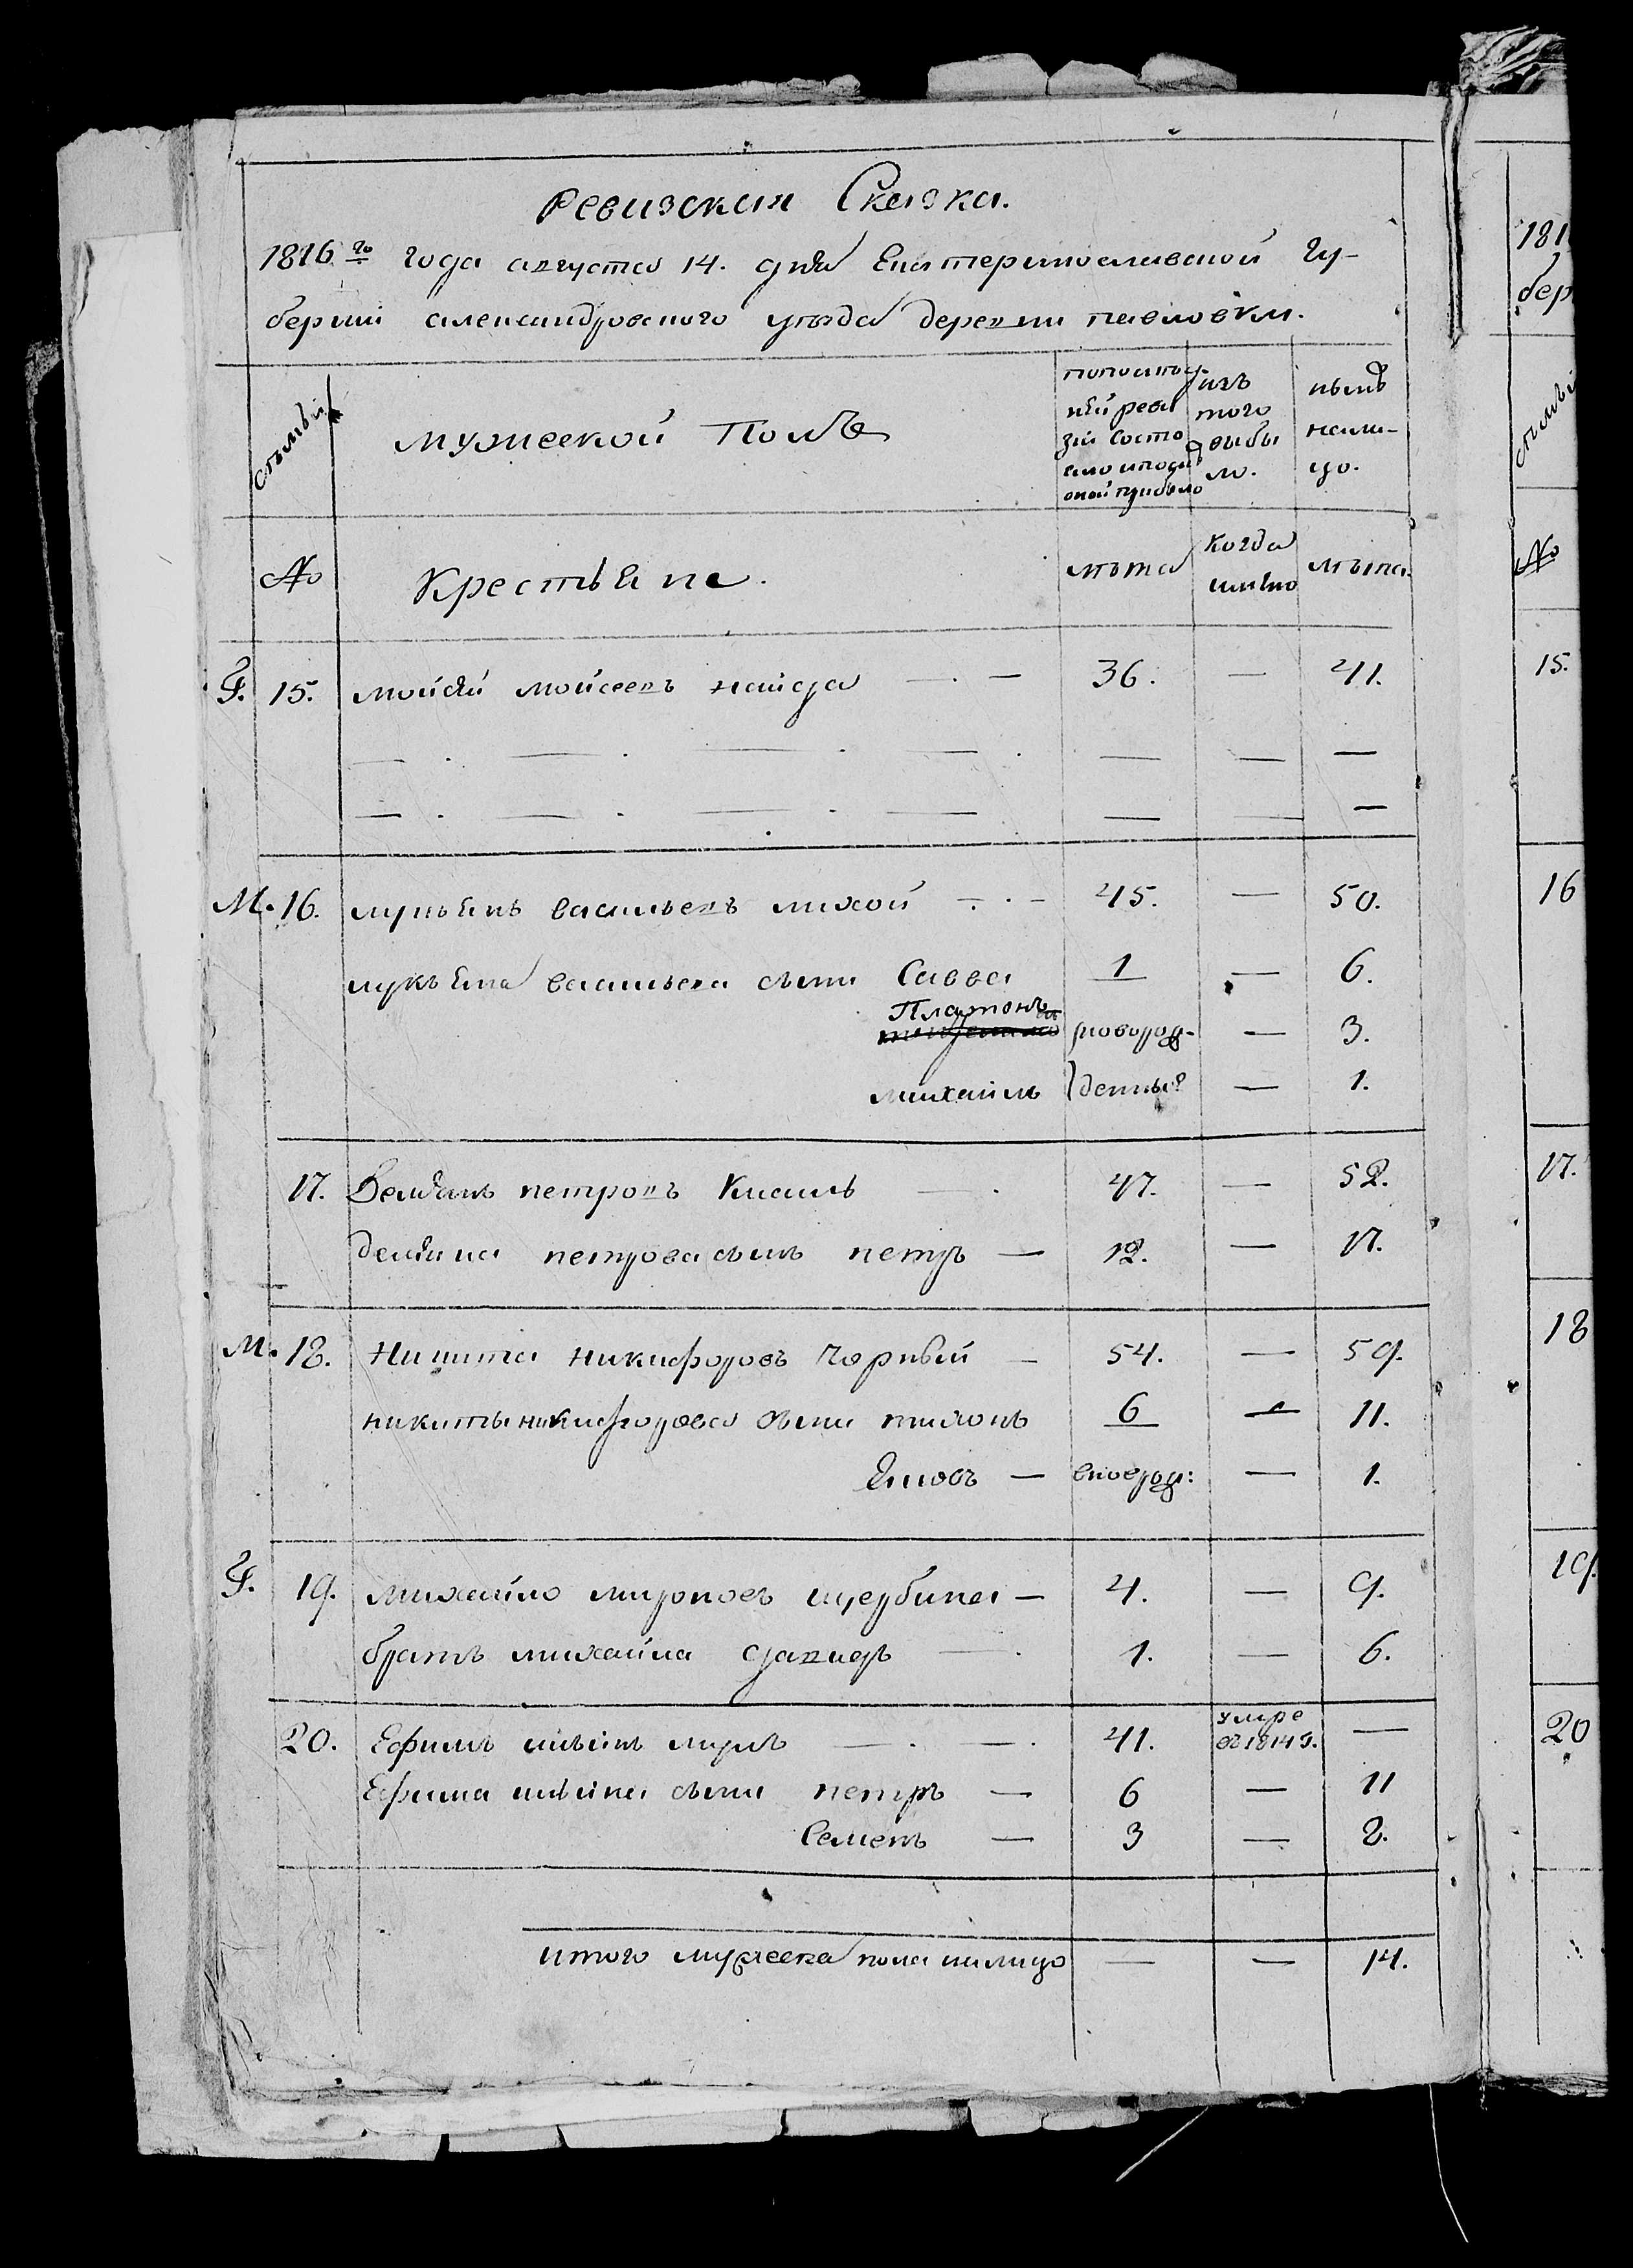 Ревизская Сказка.
1816го года августа 14. дня Екатеринославской Гу-
берніи александровскаго уѣзда деревни павловки.
семьи
мужеской Полъ
попослѣд-
ней реви
зіи состо
яло и после
оной прибыло
изъ
того
выбы
ло.
нынѣ
нали-
цо.
№
Крестьяне.
лѣта
Когда
имянно
лѣта.
15. моисѣй моисеевъ найда — . — 36. — 41.
— . — . — . — . — — —
— . — . — . — . — — —
М. 16. лукьянъ васильевъ лихой — . — 45. — 50.
лукьяна васильева сыны Савва 1 — 6.
Платонъ
новорож- — 3.
михаилъ денные — 1.
17. Демьянъ петровъ Кисиль — . 47. — 52.
демьяна петрова сынъ петръ — 12. — 17.
М. 18. Никита никифоровъ Чорный — 54. — 59.
никиты никифорова сыны тихонъ 6 — 11.
Яковъ — вноврож: — 1.
19. михайло мироновъ щербина — 4. — 9.
братъ михайла давидъ — . 1. — 6.
20. Ефимъ — . — . 41. умре
въ 1814 г. —
Ефима сыны петръ — 6 — 11
Семенъ — 3 — 8.
итого мужеска пола налицо — — 14.
181
бер
семьи
№
15.
16
17.
18
19.
20